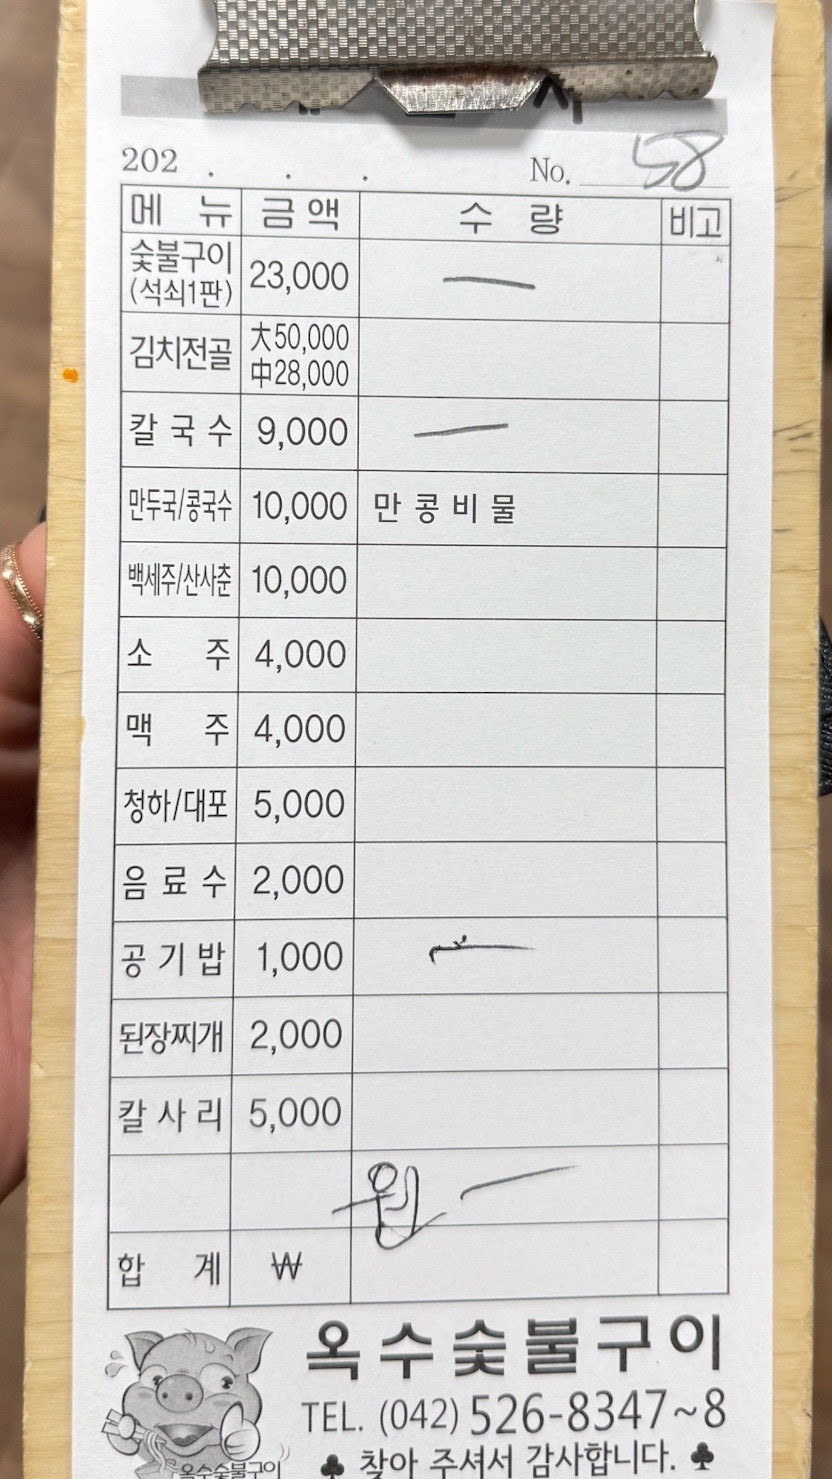 202 . . . No. 58
메 뉴 금 액 수 량 비고
숯불구이 (석쇠1판) 23,000 一
김치전골 大50,000 中28,000
칼국수 9,000 一
만두국/콩국수 10,000 만 콩 비 물
백세주/산사춘 10,000
소 주 4,000
맥 주 4,000
청하/대포 5,000
음료수 2,000
공기밥 1,000
된장찌개 2,000
칼사리 5,000
원
합 계 ₩
옥수숯불구이
TEL. (042) 526-8347~8
♣ 찾아 주셔서 감사합니다. ♣
옥수숯불구이